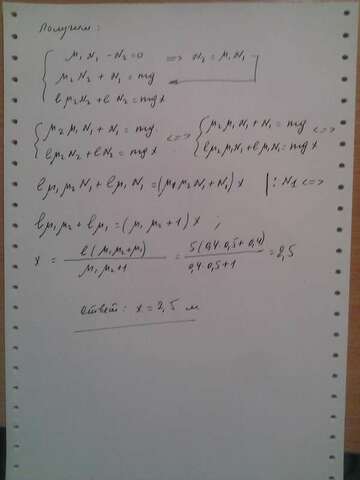 Получим:
μ₁N₁ - N₂ = 0 => N₂ = μ₁N₁
μ₂N₂ + N₁ = mg
lμ₂N₂ + lN₂ = mgx
{ μ₂μ₁N₁ + N₁ = mg <=> { μ₂μ₁N₁ + N₁ = mg <=>
lμ₂N₂ + lN₂ = mgx lμ₂μ₁N₁ + lμ₁N₁ = mgx
lμ₁μ₂N₁ + lμ₁N₁ = (μ₁μ₂N₁ + N₁)x |:N₁ <=>
lμ₁μ₂ + lμ₁ = (μ₁μ₂ + 1)x ;
x = l(μ₁μ₂ + μ₁) / μ₁μ₂ + 1 = 5(0,4·0,5 + 0,4) / 0,4·0,5 + 1 = 2,5
Ответ: x = 2,5 м